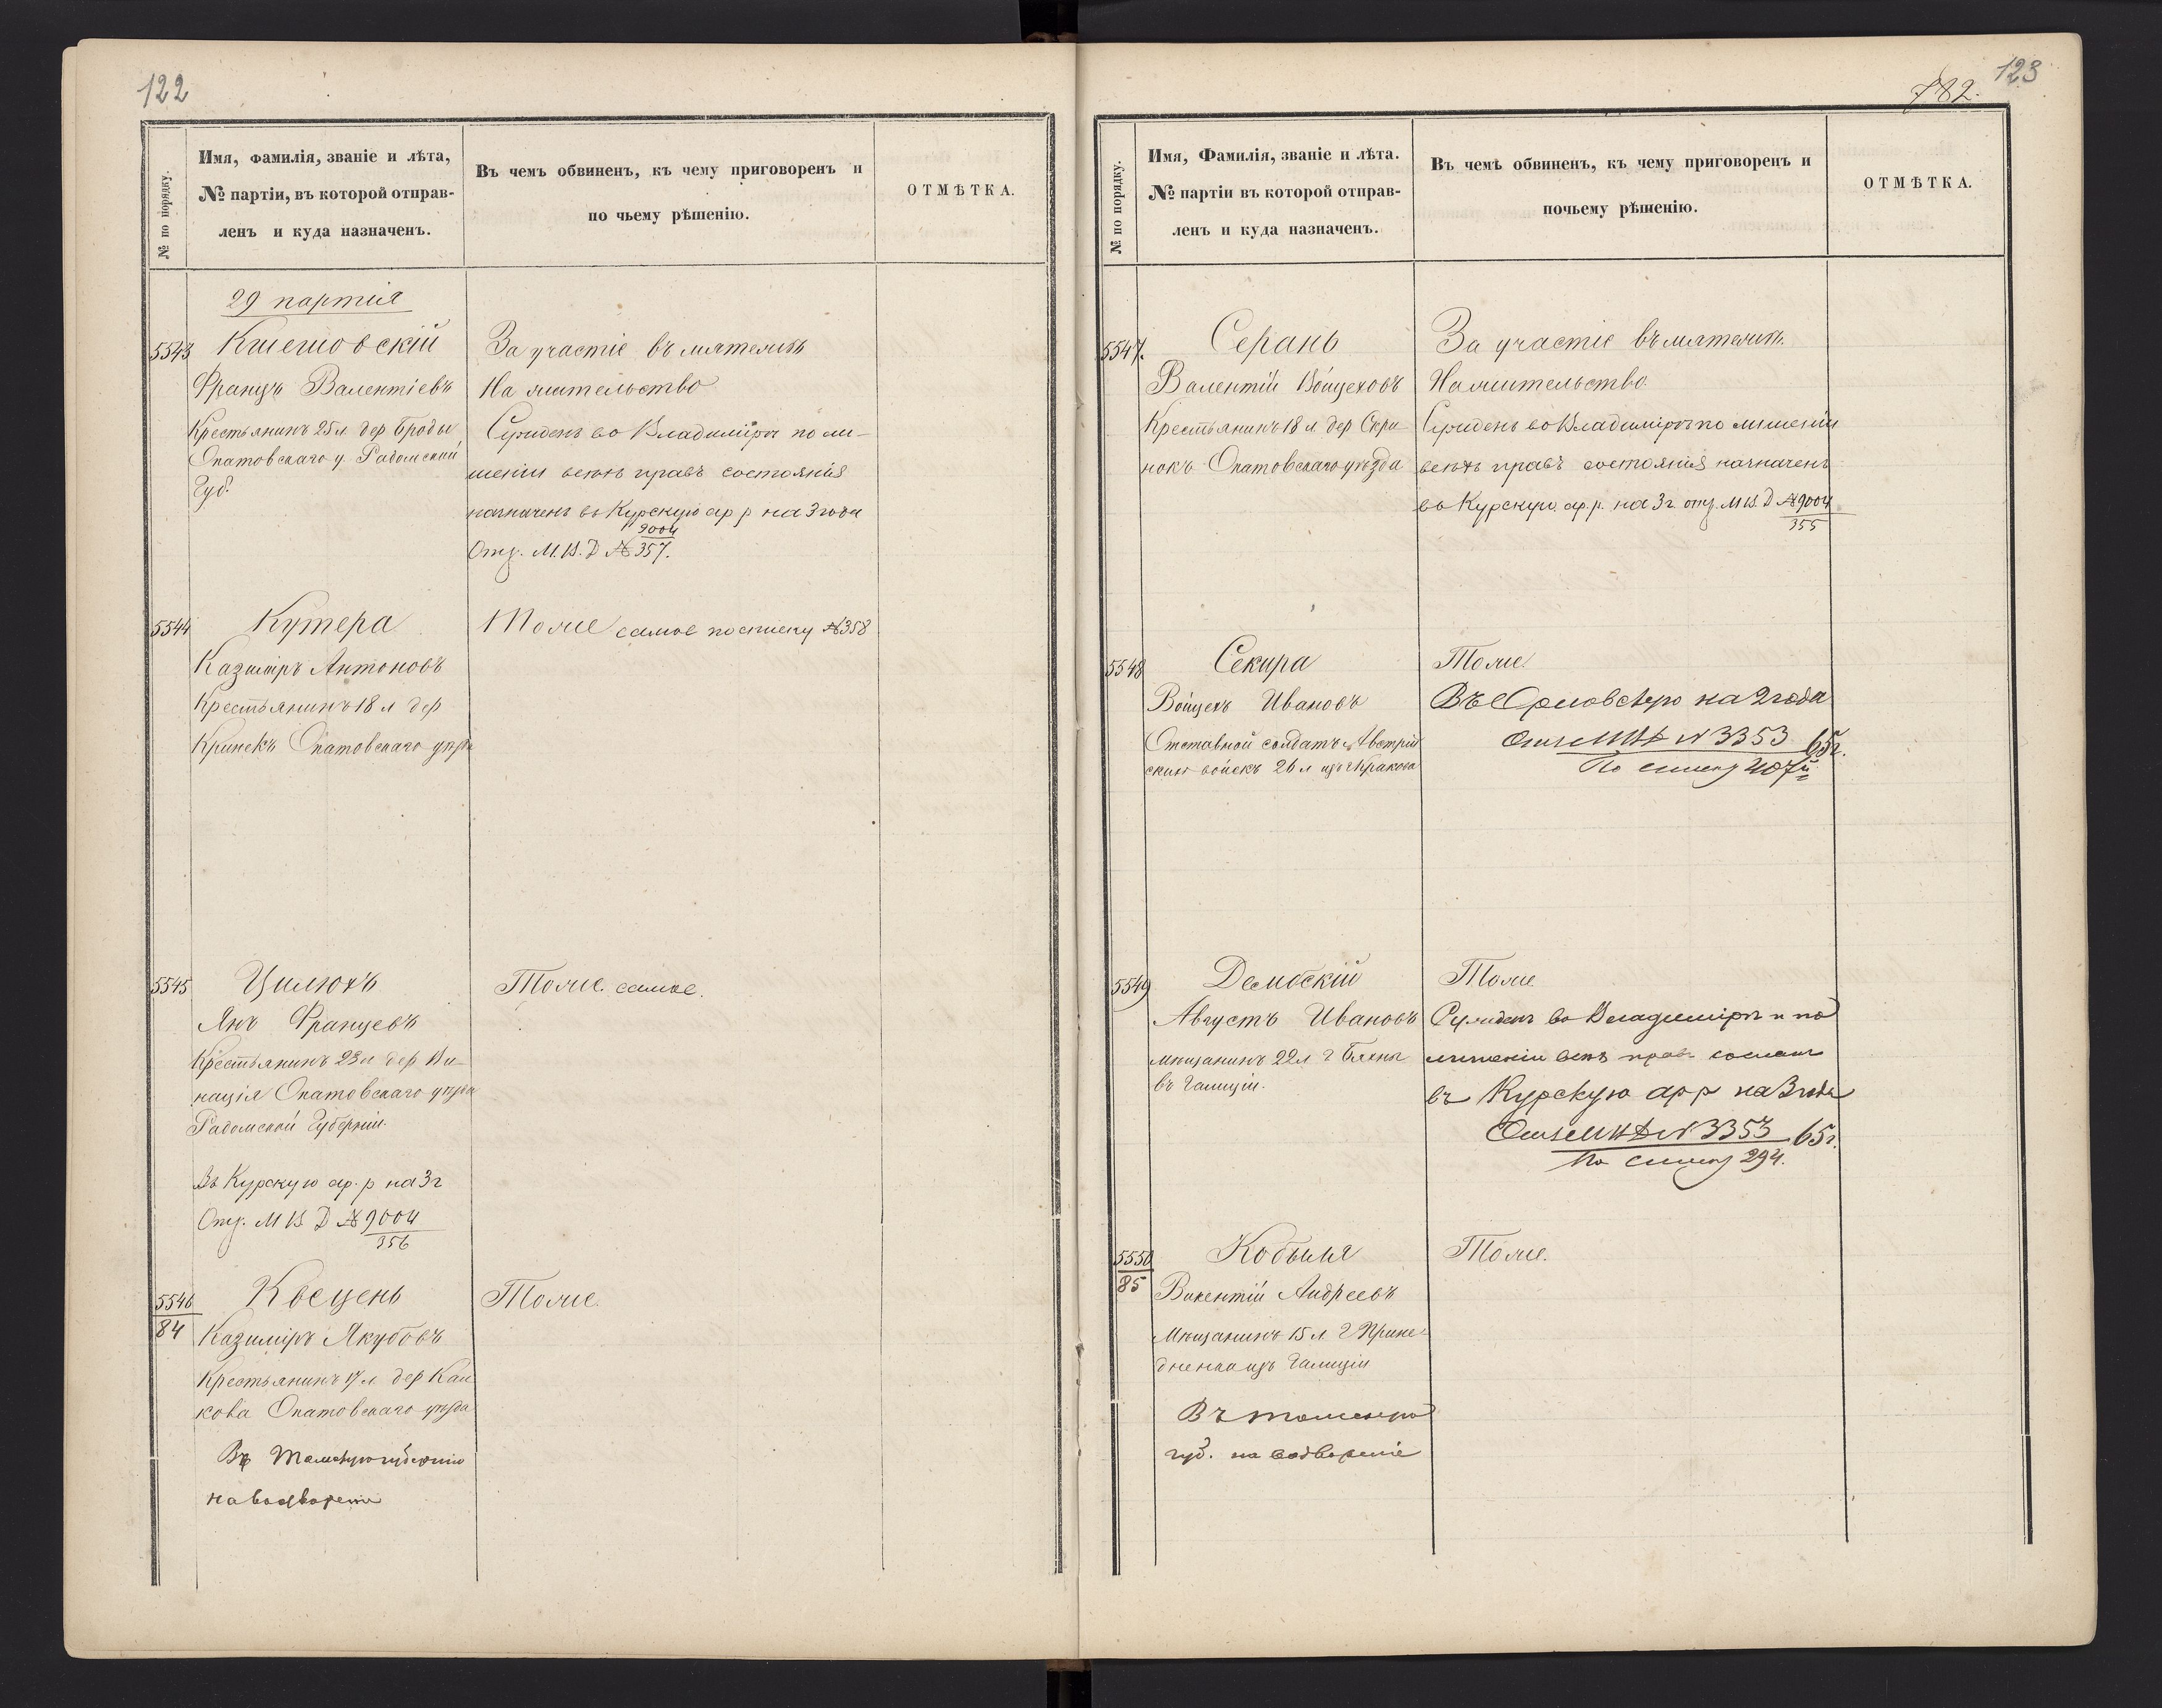 122
№ по порядку.
Имя, фамилія, званіе и лѣта,
№ партіи, въ которой отправ-
ленъ и куда назначенъ.
Въ чемъ обвиненъ, къ чему приговоренъ и
по чьему рѣшенію.
ОТМѢТКА.
29 партія
5543
Кшешовскій
Францъ Валентіевъ
Крестьянинъ 25 л дер Броды
Опатовскаго у. Радомской
Губ.
За участіе въ мятежѣ
На жительство
Сужденъ во Владимірѣ по ли-
шеніи всѣхъ правъ состоянія
назначенъ въ Курскую ар р на 3 года
Отз. М. В. Д № 9004
357.
5544
Кутера
Казиміръ Антоновъ
Крестьянинъ 18 л дер
Кринекъ Опатовскаго уѣзда
Тоже самое по списку № 358
5545
Янъ Францевъ
Крестьянинъ 23 л дер Ви-
нація Опатовскаго уѣзда
Радомской Губерніи.
Въ Курскую ар. р на 3 г
Отз. М В Д № 9004
356
Тоже самое.
5546
84
Квецень
Казиміръ Якубовъ
Крестьянинъ 17 л. дер
кова Опатовскаго уѣзда
Въ Томскую губернію
на водвореніе
Тоже.
123
782.
№ по порядку.
Имя, Фамилія, званіе и лѣта.
№ партіи въ которой отправ-
ленъ и куда назначенъ.
Въ чемъ обвиненъ, къ чему приговоренъ и
почьему рѣшенію.
ОТМѢТКА.
5547.
Серань
Валентій Войцеховъ
Крестьянинъ 18 л дер Скри-
нокъ Опатовскаго уѣзда
За участіе въ мятежѣ.
На жительство.
Сужденъ во Владимірѣ по лишеніи
всѣхъ правъ состоянія назначенъ
въ Курскую. ар. р. на 3 г. отз. М В. Д № 9004
355
5548
Секира
Войцехъ Ивановъ
Отставной солдатъ Австрій
скихъ войскъ 26 л изъ г Кракова
Тоже.
Въ Орловскую на 2 года
Отз МВД № 3353 65 г.
По списку 407й
5549
Дембскій
Августъ Ивановъ
мѣщанинъ 22 л г
въ Галиціи.
Тоже
Сужденъ во Владимірѣ и по
лишеніи всѣхъ правъ сосланъ
въ Курскую ар р на 3 года
Отз МВД № 3353 65 г.
По списку 294.
5550
85
Кобыля
Викентій Андреевъ
Мѣщанинъ 15 л. г
изъ Галиціи
Въ Томскую
губ. на водвореніе
Тоже.